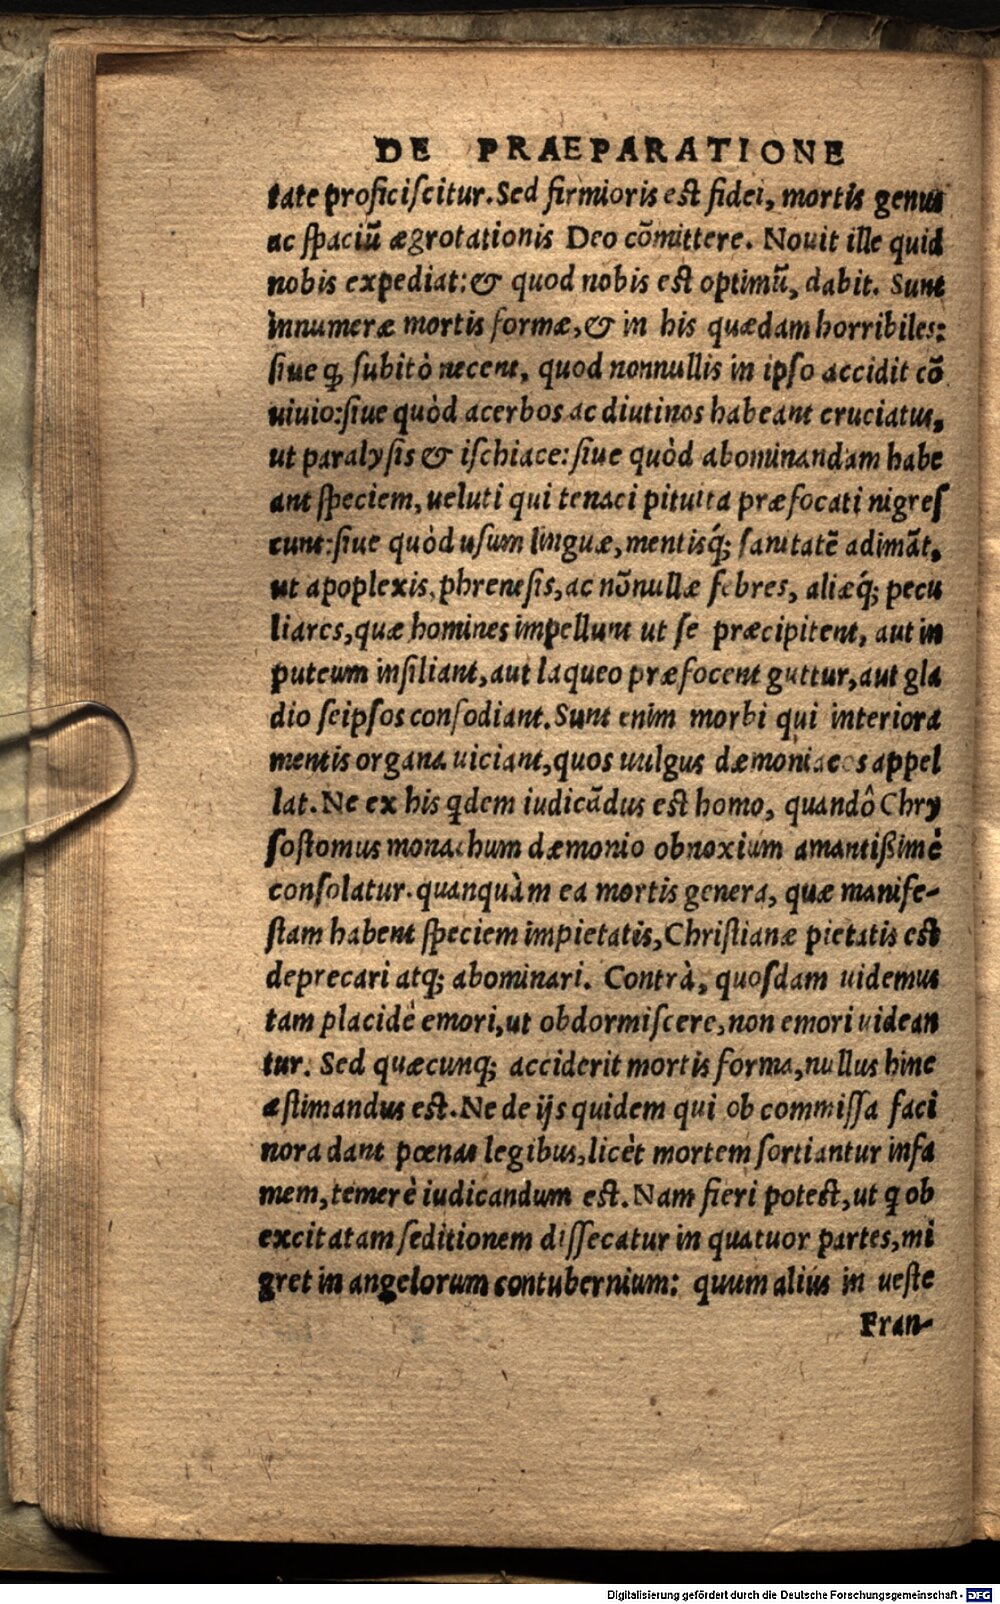 DE PRAEPARATIONE
tate proficiſcitur. Sed firmioris eſt fidei, mortis genus
ac ſpaciũ ægrotationis Deo cõmittere. Nouit ille quid
nobis expediat: & quod nobis eſt optimũ, dabit. Sunt
innumeræ mortis formæ, & in his quædam horribiles:
ſiue ꝙ ſubitò necent, quod nonnullis in ipſo accidit cõ
uiuio: ſiue quòd acerbos ac diutinos habeant cruciatus,
ut paralyſis & iſchiace: ſiue quòd abominandam habe
ant ſpeciem, ueluti qui tenaci pituita præfocati nigreſ
cunt: ſiue quòd uſum linguæ, mentisq́; ſanitatẽ adimãt,
ut apoplexis, phreneſis, ac nõnullæ febres, aliæq́; pecu
liares, quæ homines impellunt ut ſe præcipitent, aut in
puteum inſiliant, aut laqueo præfocent guttur, aut gla
dio ſeipſos confodiant. Sunt enim morbi qui interiora
mentis organa uiciant, quos uulgus dæmoniacos appel
lat. Ne ex his qdem iudicãdus eſt homo, quandô Chry
ſoſtomus monachum dæmonio obnoxium amantißimè
conſolatur. quanquàm ea mortis genera, quæ manife-
ſtam habent ſpeciem impietatis, Chriſtianæ pietatis eſt
deprecari atq; abominari. Contrà, quoſdam uidemus
tam placidè emori, ut obdormiſcere, non emori uidean
tur. Sed quæcunq; acciderit mortis forma, nullus hinc
æſtimandus eſt. Ne de ijs quidem qui ob commiſſa faci
nora dant pœnas legibus, licèt mortem ſortiantur infa
mem, temerè iudicandum eſt. Nam fieri poteſt, ut q ob
excitatam ſeditionem diſſecatur in quatuor partes, mi
gret in angelorum contubernium: quum alius in ueſte
Fran-
Digitalisierung gefördert durch die Deutsche Forschungsgemeinschaft - DFG